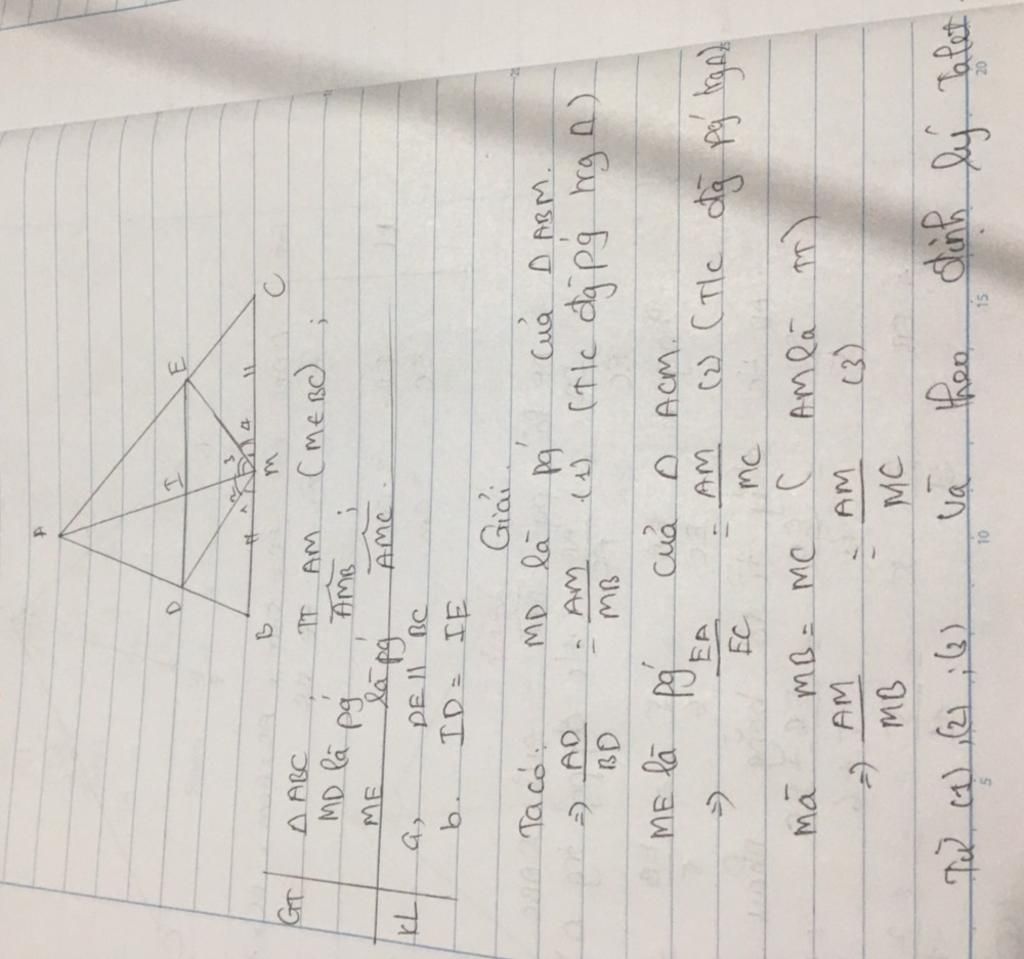 A
D
E
I
1
2
3
4
B
M
C
GT
Δ ABC
TT AM (M ∈ BC) ;
MD là pg' AMB ;
ME là pg' AMC.
KL
a, DE // BC
b. ID = IE
Giải.
Ta có: MD là pg' của Δ ABM.
=> AD/BD = AM/MB (1) (T/c đg pg' trg Δ)
ME là pg' của Δ ACM.
=> EA/EC = AM/MC (2) (T/c đg pg' trg Δ)
mà MB = MC ( AM là TT)
=> AM/MB = AM/MC (3)
Từ (1), (2) ; (3) Và theo định lý Talet
5
10
15
20